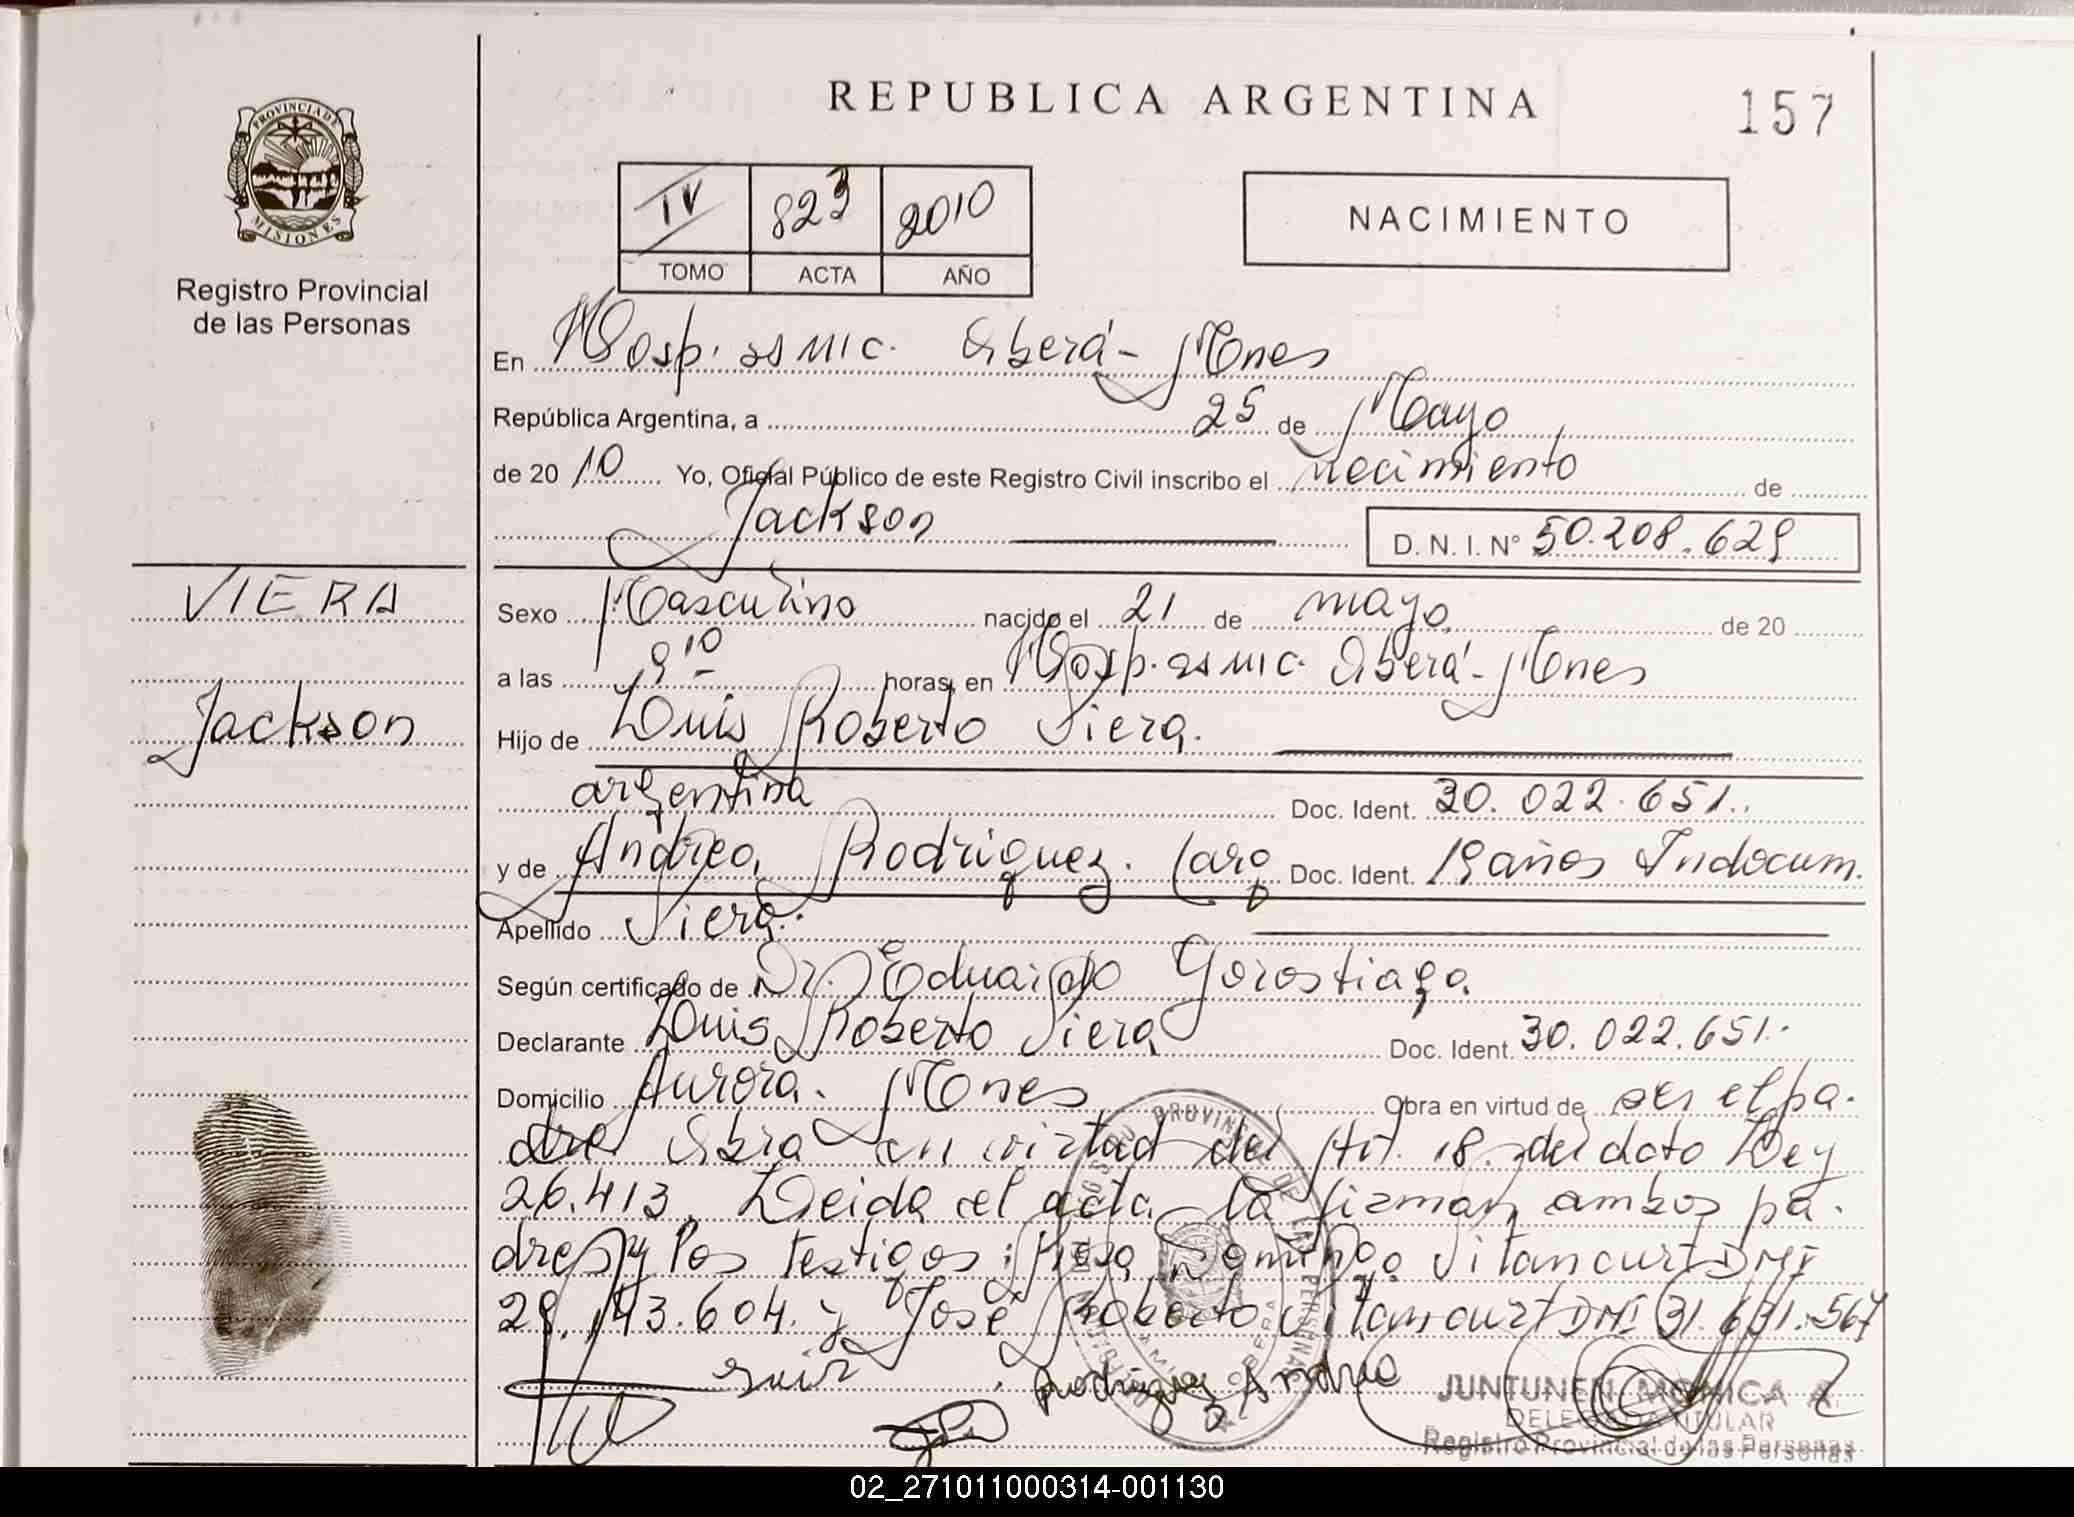 REPUBLICA ARGENTINA
157
PROVINCIA DE
MISIONES
Registro Provincial
de las Personas
IV 823 2010
TOMO ACTA AÑO
NACIMIENTO
En Hosp. as mic. Oberá - Mnes
República Argentina, a 25 de Mayo
de 2010 Yo, Oficial Público de este Registro Civil inscribo el nacimiento de
Jackson D. N. I. N° 50.208.629
VIERA
Jackson
Sexo Masculino nacido el 21 de mayo de 20
a las 9 10 horas, en Hosp. as mic. Oberá - Mnes
Hijo de Luis Roberto Viera.
argentina Doc. Ident. 30.022.651.
y de Andrea Rodriguez. Doc. Ident. 19 años Indocum.
Apellido Viera.
Según certificado de Dr. Eduardo Gorostiaga.
Declarante Luis Roberto Viera Doc. Ident. 30.022.651.
Domicilio Aurora. Mnes Obra en virtud de ser el pa.
dre Obra en virtud del Art. 18. del dcto Ley
26.413. Leida el acta la firman ambos pa.
dres y los testigos: Rosa Vitancurt DNI
29.143.604. y José Roberto Vitancurt DNI 31.631.567
Rodriguez Andrea
JUNTUNEN MONICA A.
DELEGADA TITULAR
Registro Provincial de las Personas
02_271011000314-001130